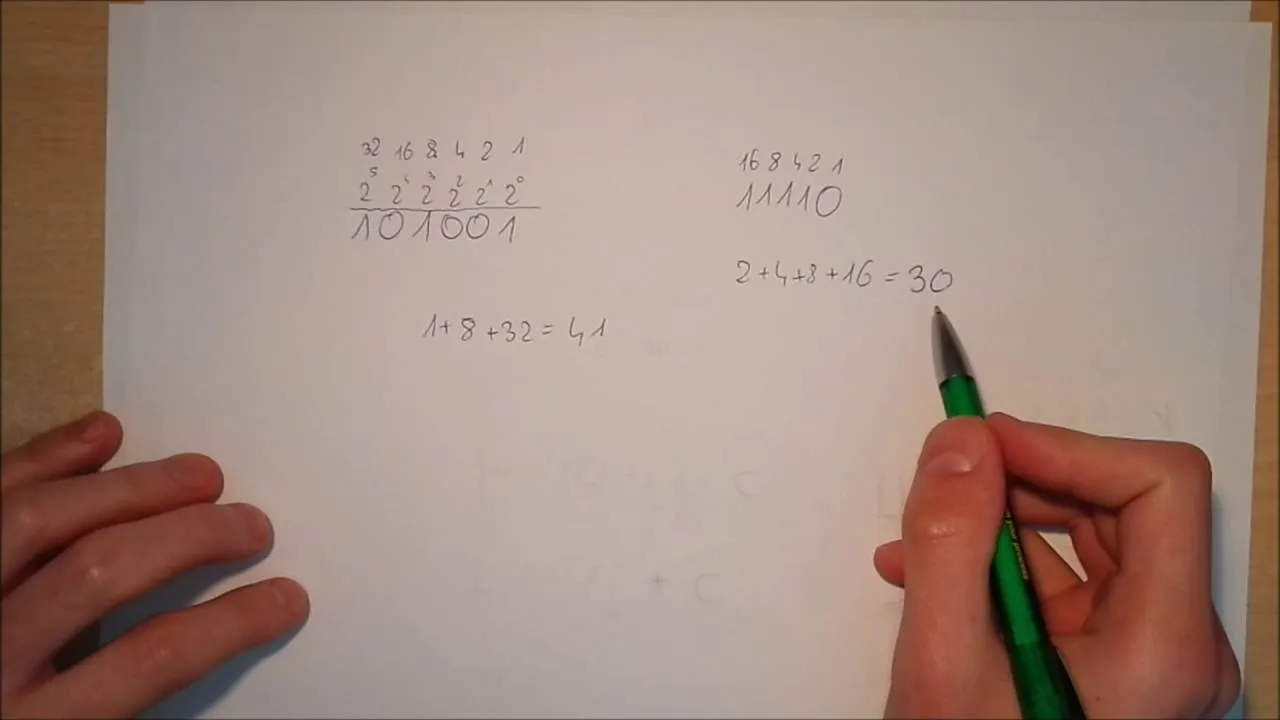 32 16 8 4 2 1
2⁵ 2⁴ 2³ 2² 2¹ 2⁰
101001
1+8+32=41
16 8 4 2 1
11110
2+4+8+16=30